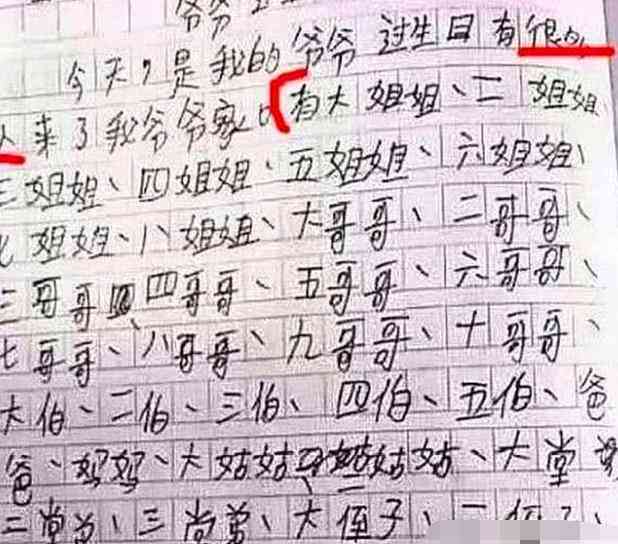 爷爷
今天,是我的爷爷过生日有很多
人来了我爷爷家,有大姐姐、二姐姐
三姐姐、四姐姐、五姐姐、六姐姐、
七姐姐、八姐姐、大哥哥、二哥哥、
三哥哥四哥哥、五哥哥、六哥哥、
七哥哥、八哥哥、九哥哥、十哥哥、
大伯、二伯、三伯、四伯、五伯、爸
爸、妈妈、大姑姑、二姑姑、大堂弟
二堂弟、三堂弟、大侄子、二侄子、